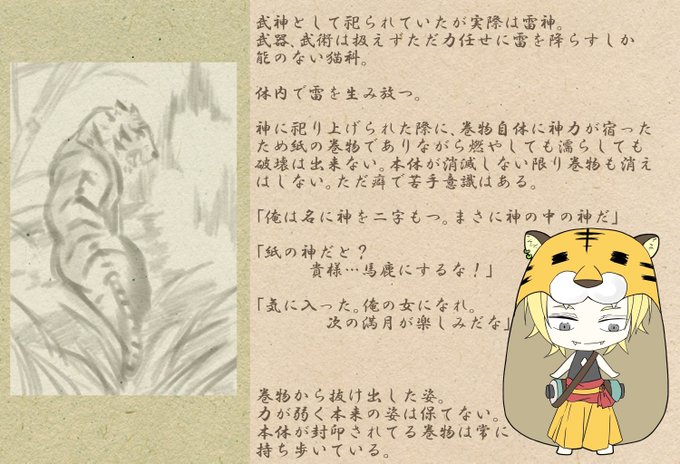 武神として祀られていたが実際は雷神。
武器、武術は扱えずただ力任せに雷を降らすしか
能のない猫科。
体内で雷を生み放つ。
神に祀り上げられた際に、巻物自体に神力が宿った
ため紙の巻物でありながら燃やしても濡らしても
破壊は出来ない。本体が消滅しない限り巻物も消え
はしない。ただ癖で苦手意識はある。
「俺は名に神を二字もつ。まさに神の中の神だ」
「紙の神だと？
貴様…馬鹿にするな！」
「気に入った。俺の女になれ。
次の満月が楽しみだな」
巻物から抜け出した姿。
力が弱く本来の姿は保てない。
本体が封印されてる巻物は常に
持ち歩いている。